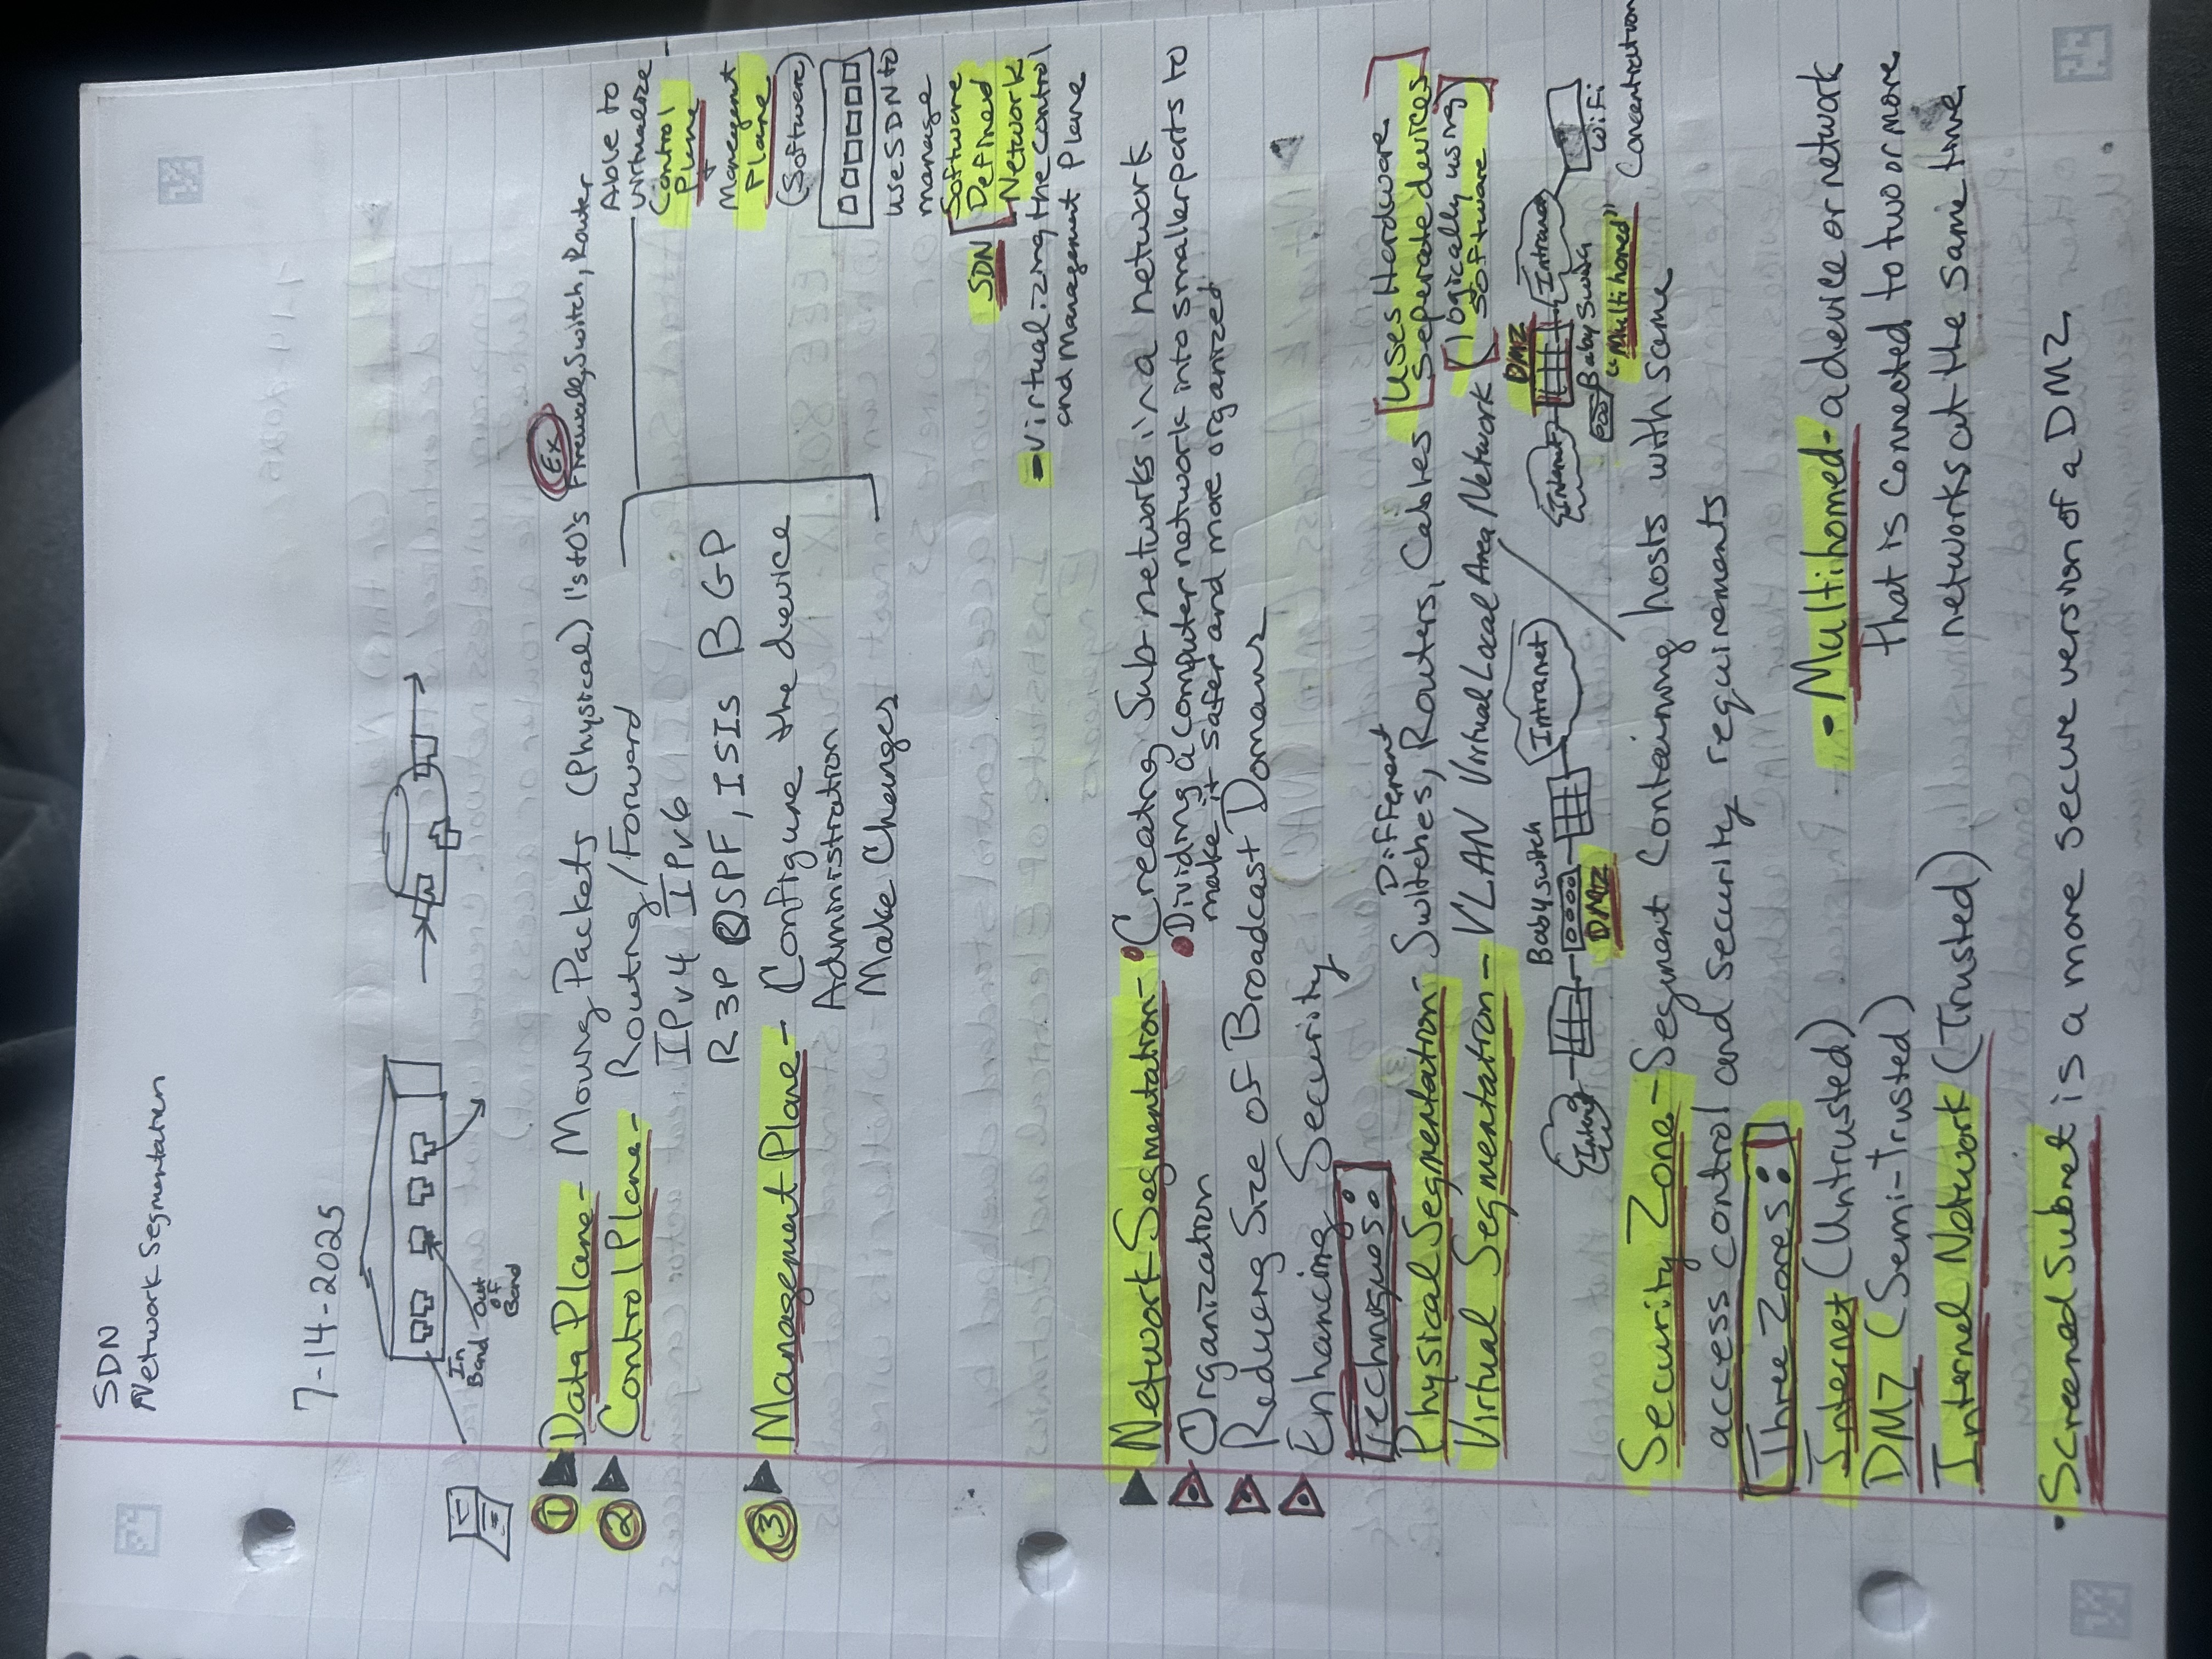 SDN
Network Segmentation
7-14-2025
In
Band
Out
of
Band
① Data Plane - Moving Packets (Physical) 1's to 0's Ex Firewall, Switch, Router
② Control Plane - Routing/Forward
IPv4 IPv6
R3P OSPF, ISIS BGP
③ Management Plane - Configure the device
Administration
Make Changes
Able to
virtualize
Control
Plane
+
Management
Plane
(Software)
use SDN to
manage
SDN [Software
Defined
Network
- Virtualizing the control
and Management Plane
Network Segmentation - • Creating Sub-networks in a network
• Dividing a computer network into smaller parts to
make it safer and more organized
Organization
Reducing Size of Broadcast Domains
Enhancing Security
Techniques:
Physical Segmentation - Different Switches, Routers, Cables [Uses Hardware
Seperate devices]
Virtual Segmentation - VLAN Virtual Local Area Network [logically using
software]
Internet
Baby switch
DMZ
Intranet
Internet
DMZ
Intranet
Baby Switch
"Multihomed"
WiFi
Concentration
Security Zone - Segment Containing hosts with same
access control and security requirements
Three Zones:
Internet (Untrusted)
DMZ (Semi-Trusted)
Internel Network (Trusted)
• Multihomed - a device or network
that is connected to two or more
networks at the same time
• Screened Subnet is a more secure version of a DMZ